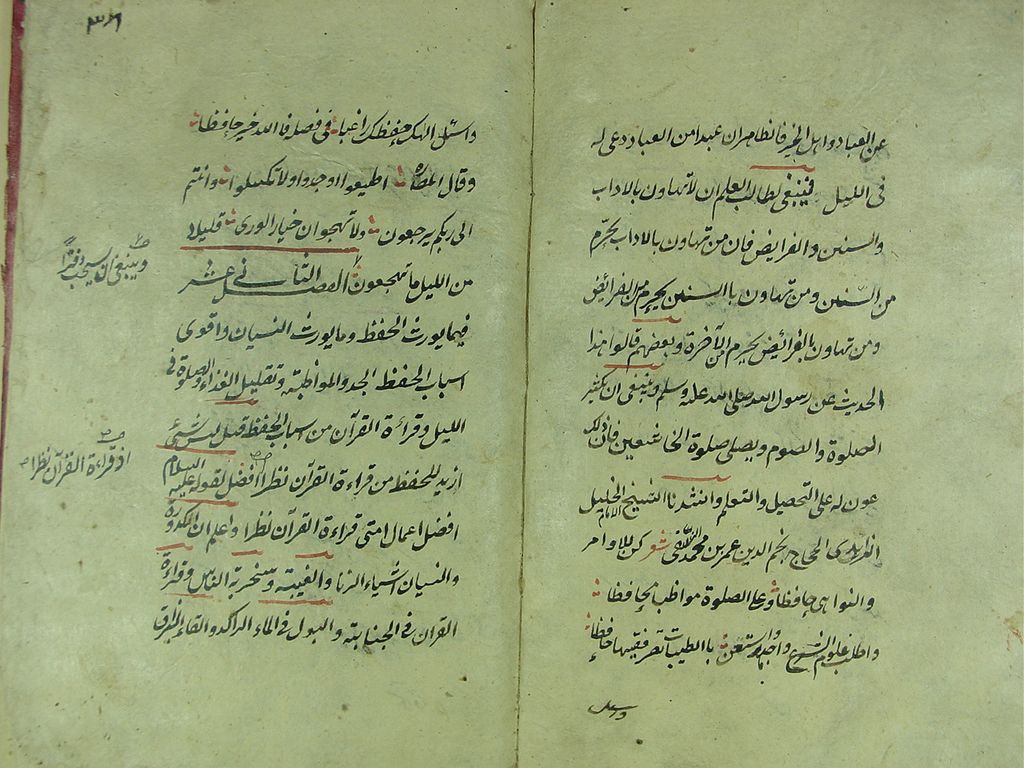 عن العباد واهل الخير فانظاهران عبدا من العباد دعى له
فى الليل فينبغى لطالب العلم ان لا تهاون بالاداب
والسنن والفرايض فان من تهاون بالاداب يحرم
من السنن ومن تهاون باالسنن يحرم من الفرائض
ومن تهاون بالفرائض يحرم من الآخرة وبعضهم قالوا هذا
الحديث عن رسول الله صلى الله عليه وسلم وينبغى ان يكثر
الصلوة والصوم ويصلى صلوة الخاشعين فان ذلك
عون له على التحصيل والتعلم وانشدنا الشيخ الامام الجليل
الحاج نجم الدين عمر بن محمد النسفى شعر كن للاوامر
والنواهى حافظا وعلى الصلوة مواظبا محافظا
واطلب علوم الشرع واجهد واستعن باالطيبات تصر فقيها حافظا
واسئل
٣٦
واسئل الهك حفظك راغبا فى فضله فاالله خير حافظا
وقال اطيعوا وجدوا ولا تكسلوا وانتم
الى ربكم يرجعون ولا تهجعوا ن خيار الورى قليلا
من الليل ما يهجعون الفصل الثانى عشر
فيما يورث الحفظ وما يورث النسيان واقوى
اسباب الحفظ الجد والمواظبة وتقليل الغذاء والصلوة فى
الليل وقراءة القرآن من اسباب الحفظ قيل ليس شىء
ازيد للحفظ من قراءة القرآن نظرا افضل لقوله عليه السلام
افضل اعمال امتى قراءة القرآن نظرا واعلم ان
والنسيان اشياء الزنا والغيبة وسخرية الناس وقراءة
القرآن فى الجنابة والبول فى الماء الراكد والقاء
وينبغى ان دفترا
اذ قراءة القرآن نظرا